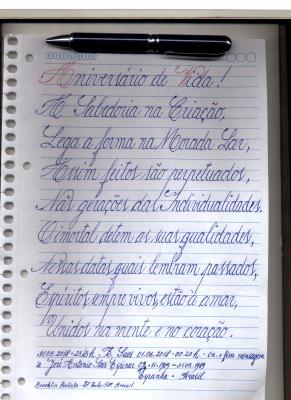 Aniversário de Vida!
A Sabedoria na Criação,
Lega a forma na Morada Lar,
Assim feitos são perpetuados,
Nas gerações das Individualidades.
O imortal detem as suas qualidades,
Nessas datas quais lembram passados,
Espíritos sempre vivos, estão à amar,
Unidos na mente e no coração.
31.05.2018 - 23:40h 01.06.2018 - 00:20h - in. e fim mensagem
a José Antonio Saes 07.11.1909 - 31.05.1989
Brasil
Brooklin Paulista - São Paulo - SP Brasil